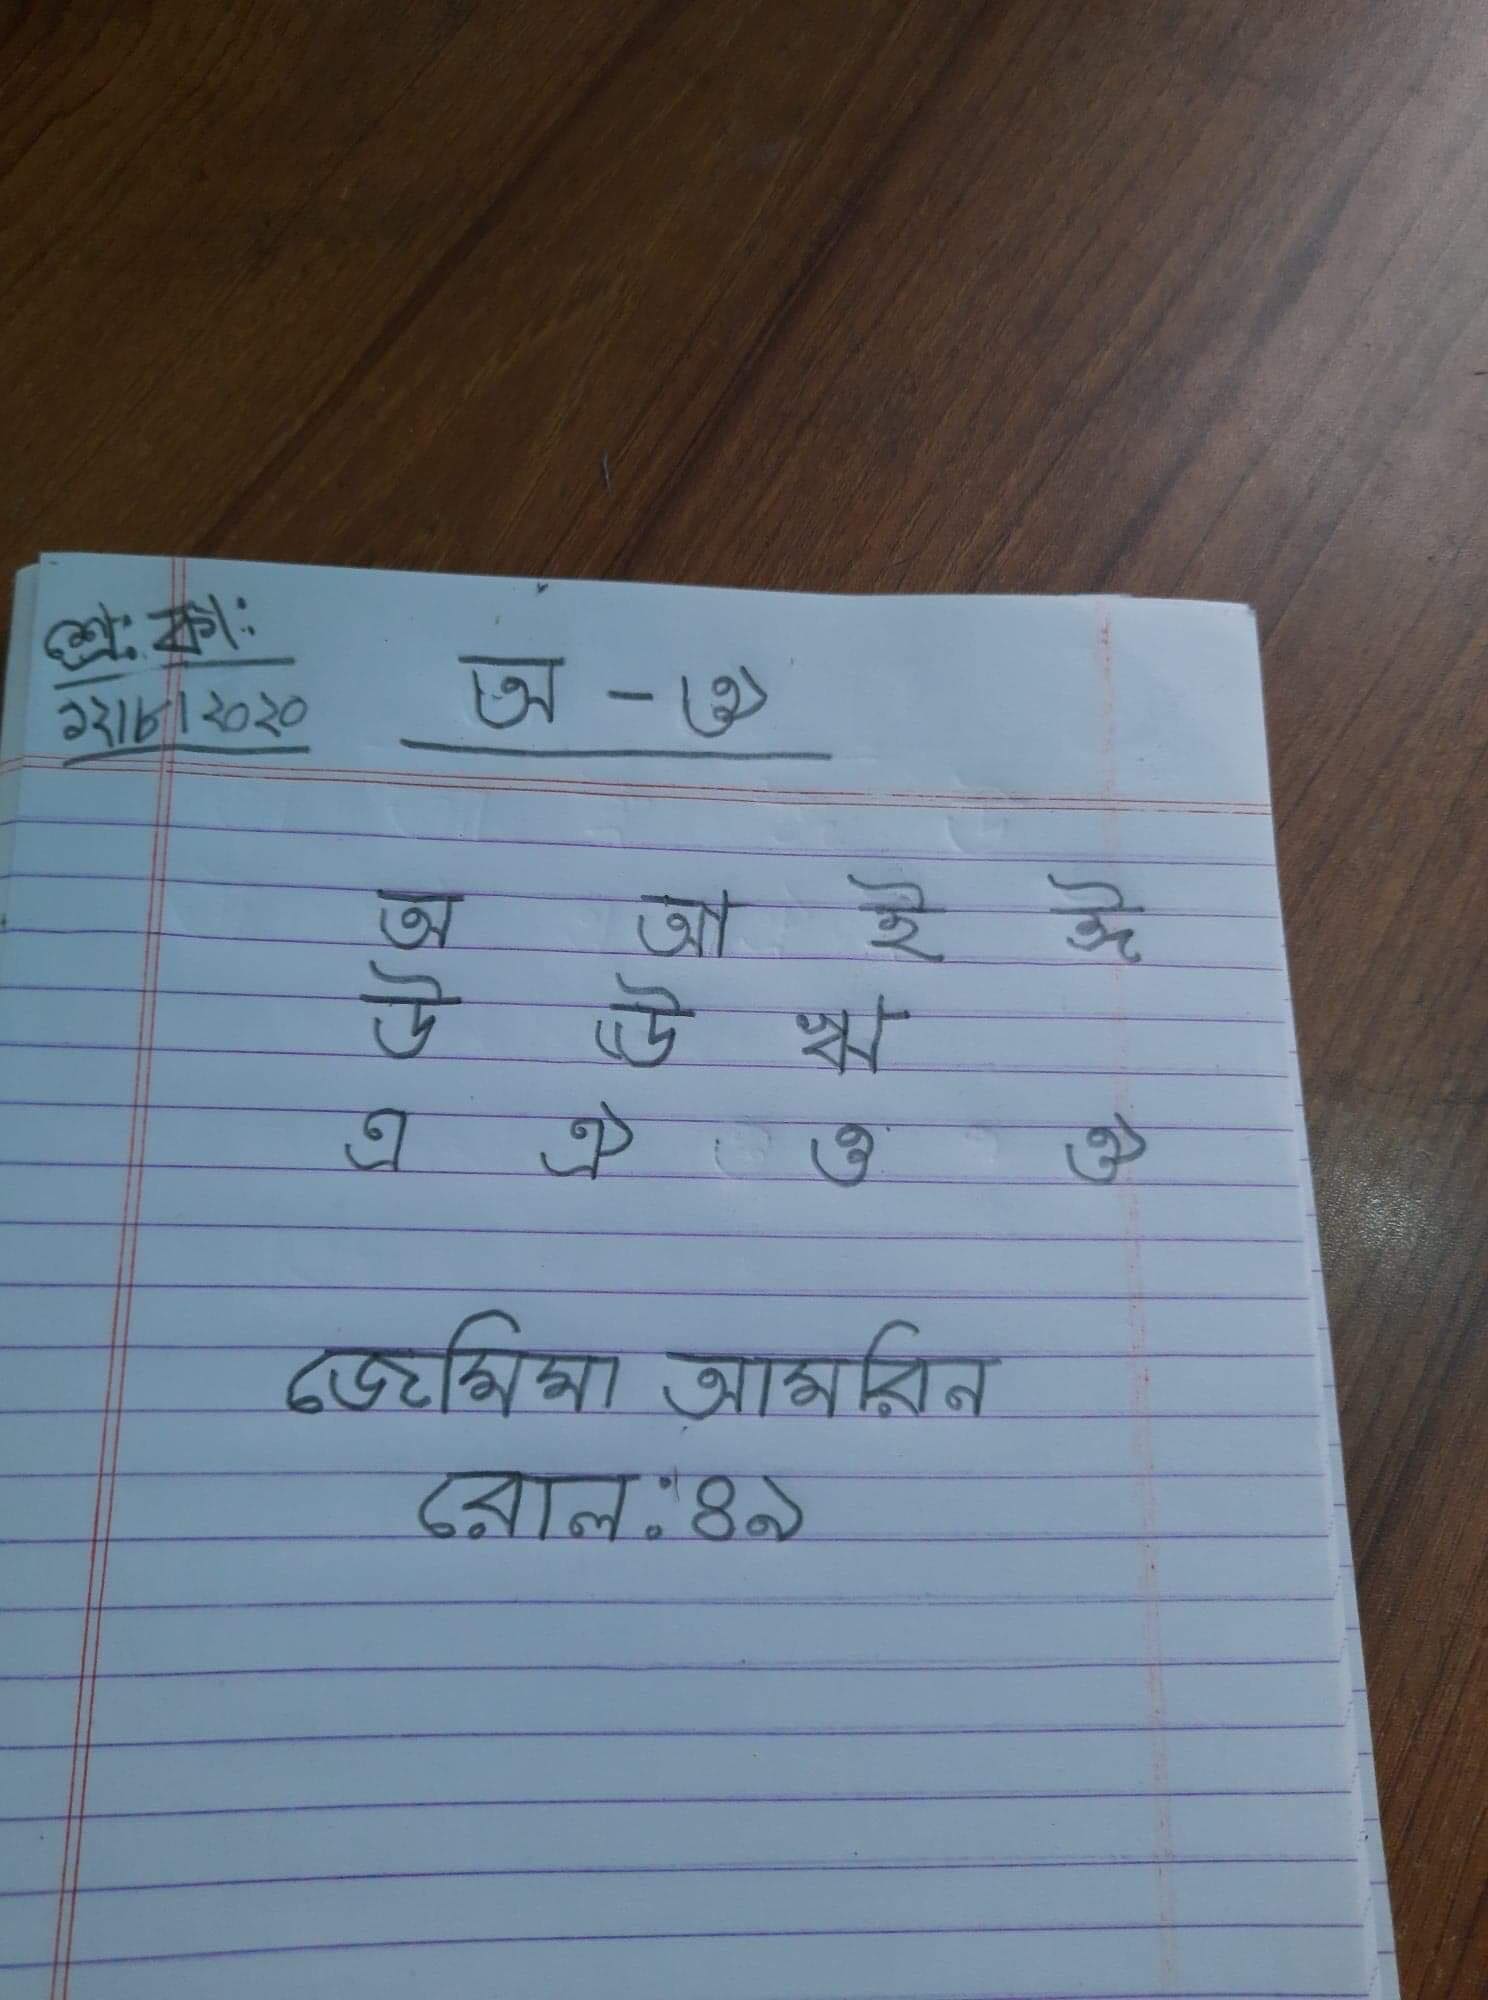 শ্রে: কা:
১২।৮।২০২০
অ - ঔ
অ আ ই ঈ
উ ঊ ঋ
এ ঐ ও ঔ
জেমিমা আমরিন
রোল: ৪১